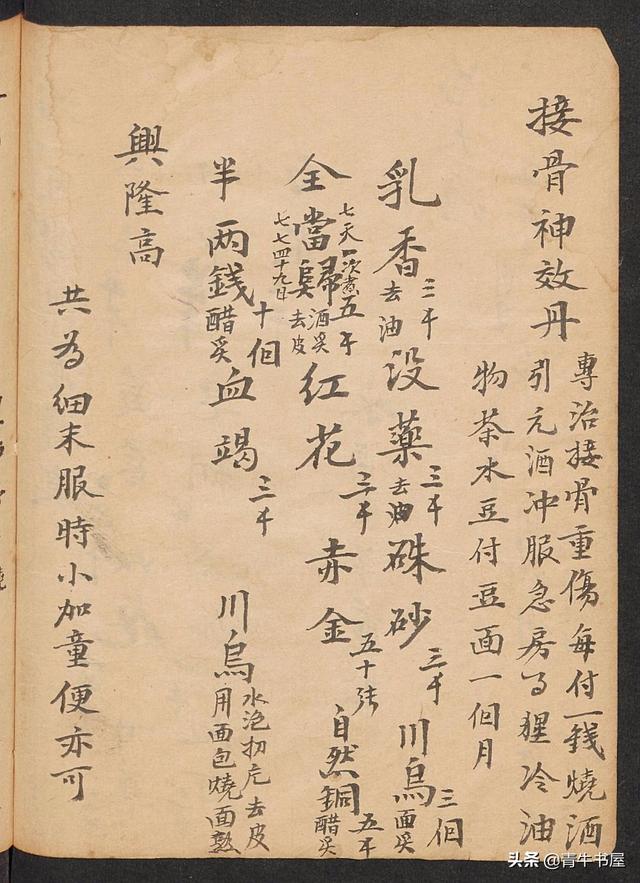 接骨神效丹
專治接骨重傷每付一錢燒酒
引元酒冲服急房猩冷油
物茶水豆付豆面一個月
乳香三千去油没藥三千去油硃砂三千川烏三個面炙
全當歸五千酒炙去皮紅花三千赤金五十張自然銅五千醋炙
七天一次煮
七七四十九日
半两錢十個醋炙血竭三千
川烏水泡扨片去皮
用面包燒面熟
興隆高
共為細末服時小加童便亦可
头条 @青牛书屋